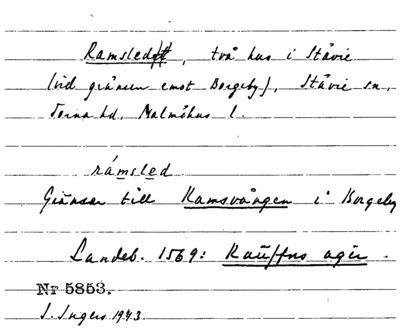 Ramsled, två hus i Stävie
(vid gränsen emot Borgeby), Stävie sn,
Torna hd, Malmöhus l.
rámsled
Gränsar till Ramsvången i Borgeby
Landeb. 1569: agir.
Nr 5853.
I. Ingers 1943.